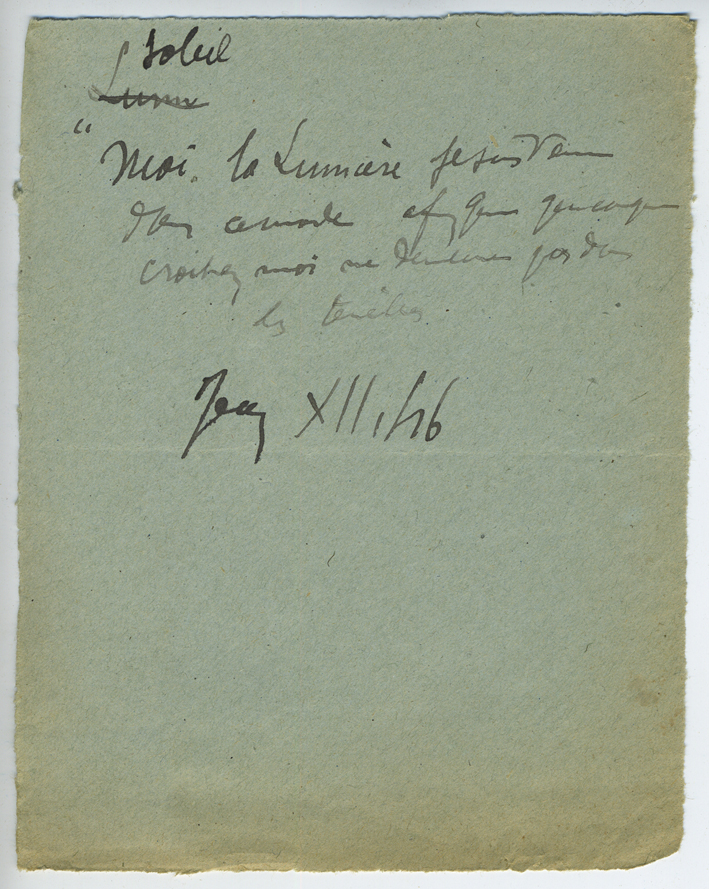 Soleil
Lumi
" Moi. la Lumière je suis venu
dans ce monde afin que quiconque
croit en moi ne demeure pas dans
les ténèbres
Jean XII, 46